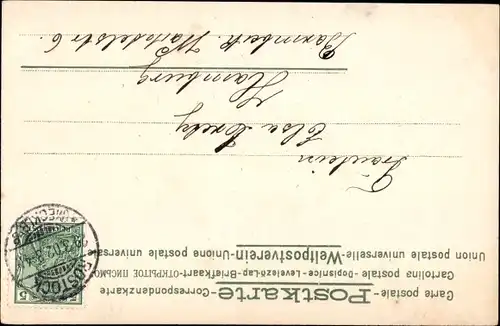 Carte postale - Postkarte - Correspondenzkarte
Cartolina postale - Dopisnice - Levelező-Lap - Briefkaart - ОТКРЫТОЕ ПИСЬМО
Union postale universelle - Weltpostverein - Unione postale universale
5
ROSTOCK
(MECKLB)
Fräulein
Else
Hamburg
Barmbeck
6